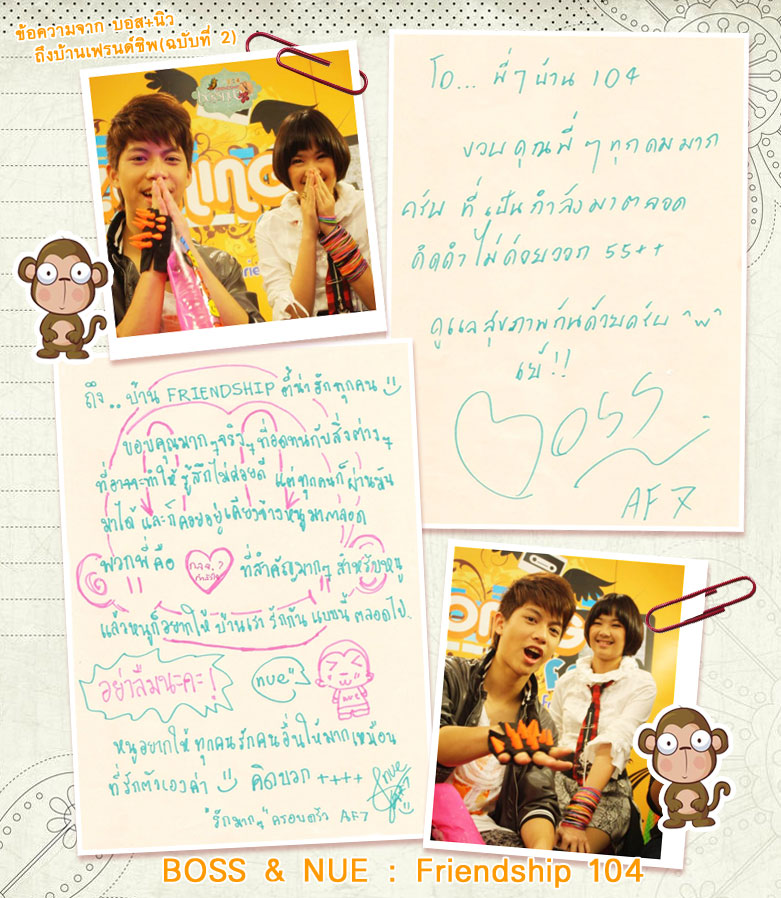 ข้อความจาก บอส+นิว
ถึงบ้านเฟรนด์ชิพ(ฉบับที่ 2)
โอ... พี่ๆ บ้าน 104
ขอบคุณพี่ๆ ทุกคนมาก
ครับ ที่เป็นกำลังมาตลอด
ไม่ค่อยออก 55++
ดูแลสุขภาพกันด้วยครับ ^w^
BOSS
AF7
ถึง.. บ้าน FRIENDSHIP ที่น่ารักทุกคน
ขอบคุณมากๆจริงๆ ที่อดทนกับสิ่งต่างๆ
ที่อาจจะทำให้รู้สึกไม่ค่อยดี แต่ทุกคนก็ผ่านมัน
มาได้ และก็คอยอยู่เคียงข้างหนูมาตลอด
พวกพี่คือ ที่สำคัญมากๆ สำหรับหนู
แล้วหนูก็อยากให้ บ้านเรา รักกัน แบบนี้ ตลอดไป..
อย่าลืมนะคะ!
nue"
NUE
หนูอยากให้ ทุกคนรักคนอื่นให้มากเหมือน
ที่รักตัวเองค่า คิดบวก ++++
nue
AF7
"รักมากๆ" ครอบครัว AF7
BOSS & NUE : Friendship 104